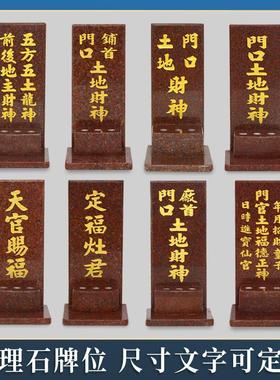 五方五土龍神
前後地主財神
鋪首
門口
土地財神
門口
土地
財神
門口土地財神
天官賜福
定福灶君
廠首
門口
土地財神
年月招財童子
門官土地福德正神
日時進寶仙官
理石牌位 尺寸文字可定